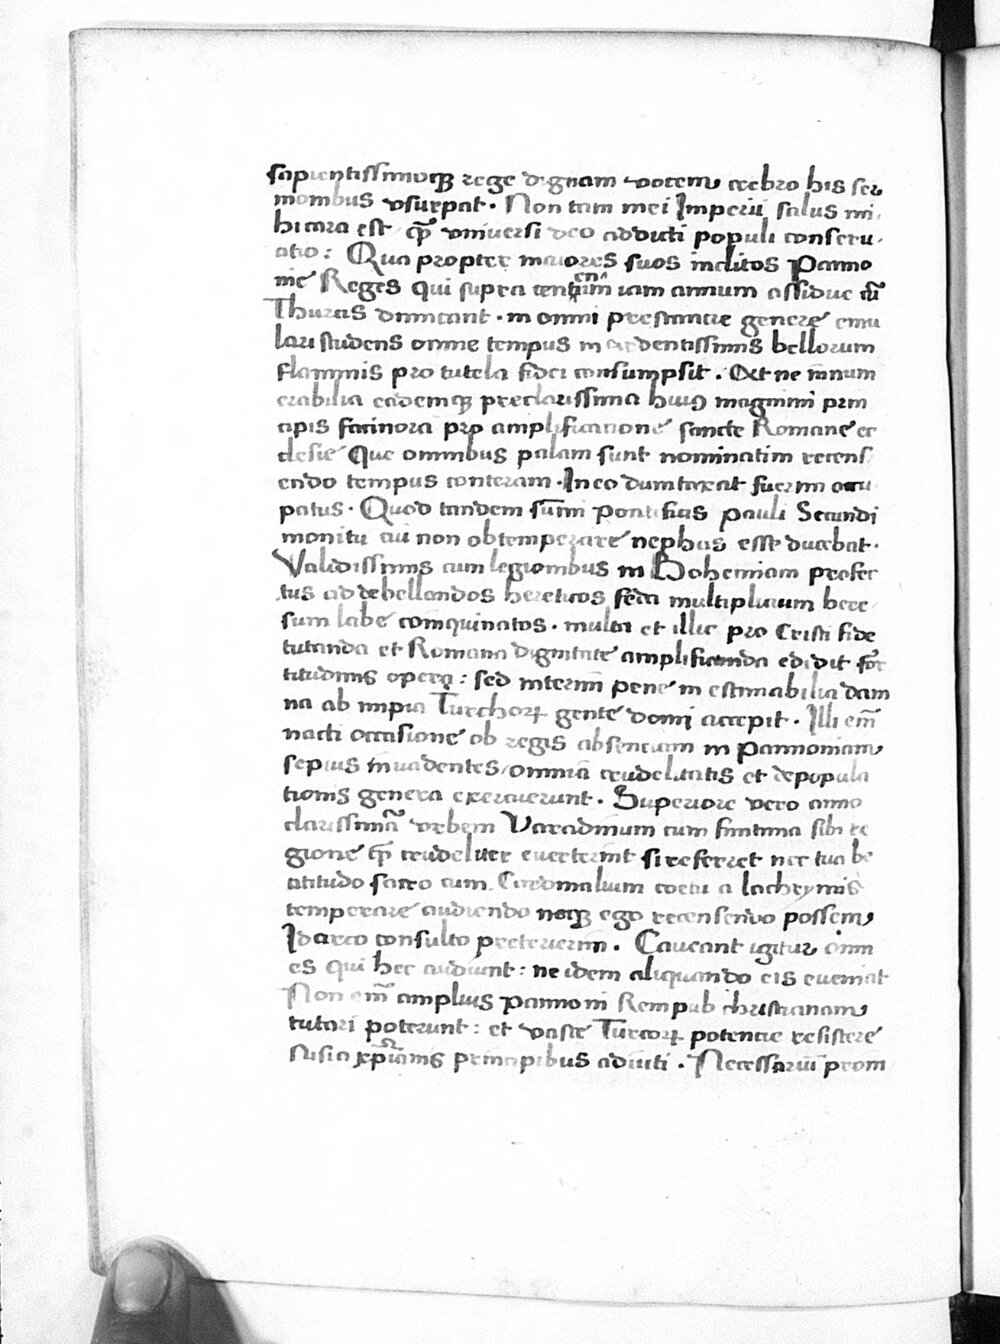 sapientissimoqꝫ rege dignam vocem crebro his ser
monibus vsurpat. Non tam mei Imperii salus mi,
hi cara est qꝫ vniuersi deo addicti populi conseru,
atio: Qua propter maiores suos inclitos Panno
nie Reges qui supra centenũ iam annum assidue cũ
Thurcis dimicant. in omni prestantie genere emu
lari studens omne tempus in ardentissimis bellorum
flammis pro tutela fidei consumpsit. Et ne innum
erabilia eademqꝫ preclarissima huiꝰ magnimi prin
cipis facinora pro amplificatione sancte Romane ec
clesie Que omnibus palam sunt nominatim recens,
endo tempus conteram. In eo dumtaxat fuerim occu
patus. Quod tandem sũmi pontificis pauli Secundi
monitu cui non obtemperare nephas esse ducebat.
Validissimis cum legionibus in Bohemiam profec
tus ad debellandos hereticos feda multiplicium here
sum labe coinquinatos. multa et illic pro Cristi fide
tutanda et Romana dignitate amplificanda edidit for
titudinis opera: sed interim pene in estimabilia dam
na ab impia Turchoꝝ gente domi accepit. Illi em̃
nacti occasione ob regis absenciam in Pannoniam
sepius inuadentes/omnia crudelitatis et depopula
tionis genera exercuerunt. Superiore vero anno
clarissimã vrbem Varadinum cum finitima sibi re
gione qꝫ crudeliter euerterint si referret nec tua be
atitudo sacro cum Cardinalium cetu a lachrymis
temperare audiendo neqꝫ ego recensendo possem
Id arco consulto preterierim. Caueant igitur omn
es qui hec audiunt: ne idem aliquando eis eueniat
Non em̃ amplius pannoni Rempub christianam
tutari poterunt: et vaste Turcoꝝ potencie resistere
nisi a xp̃ianis principibus adiuti. Necessariũ prom